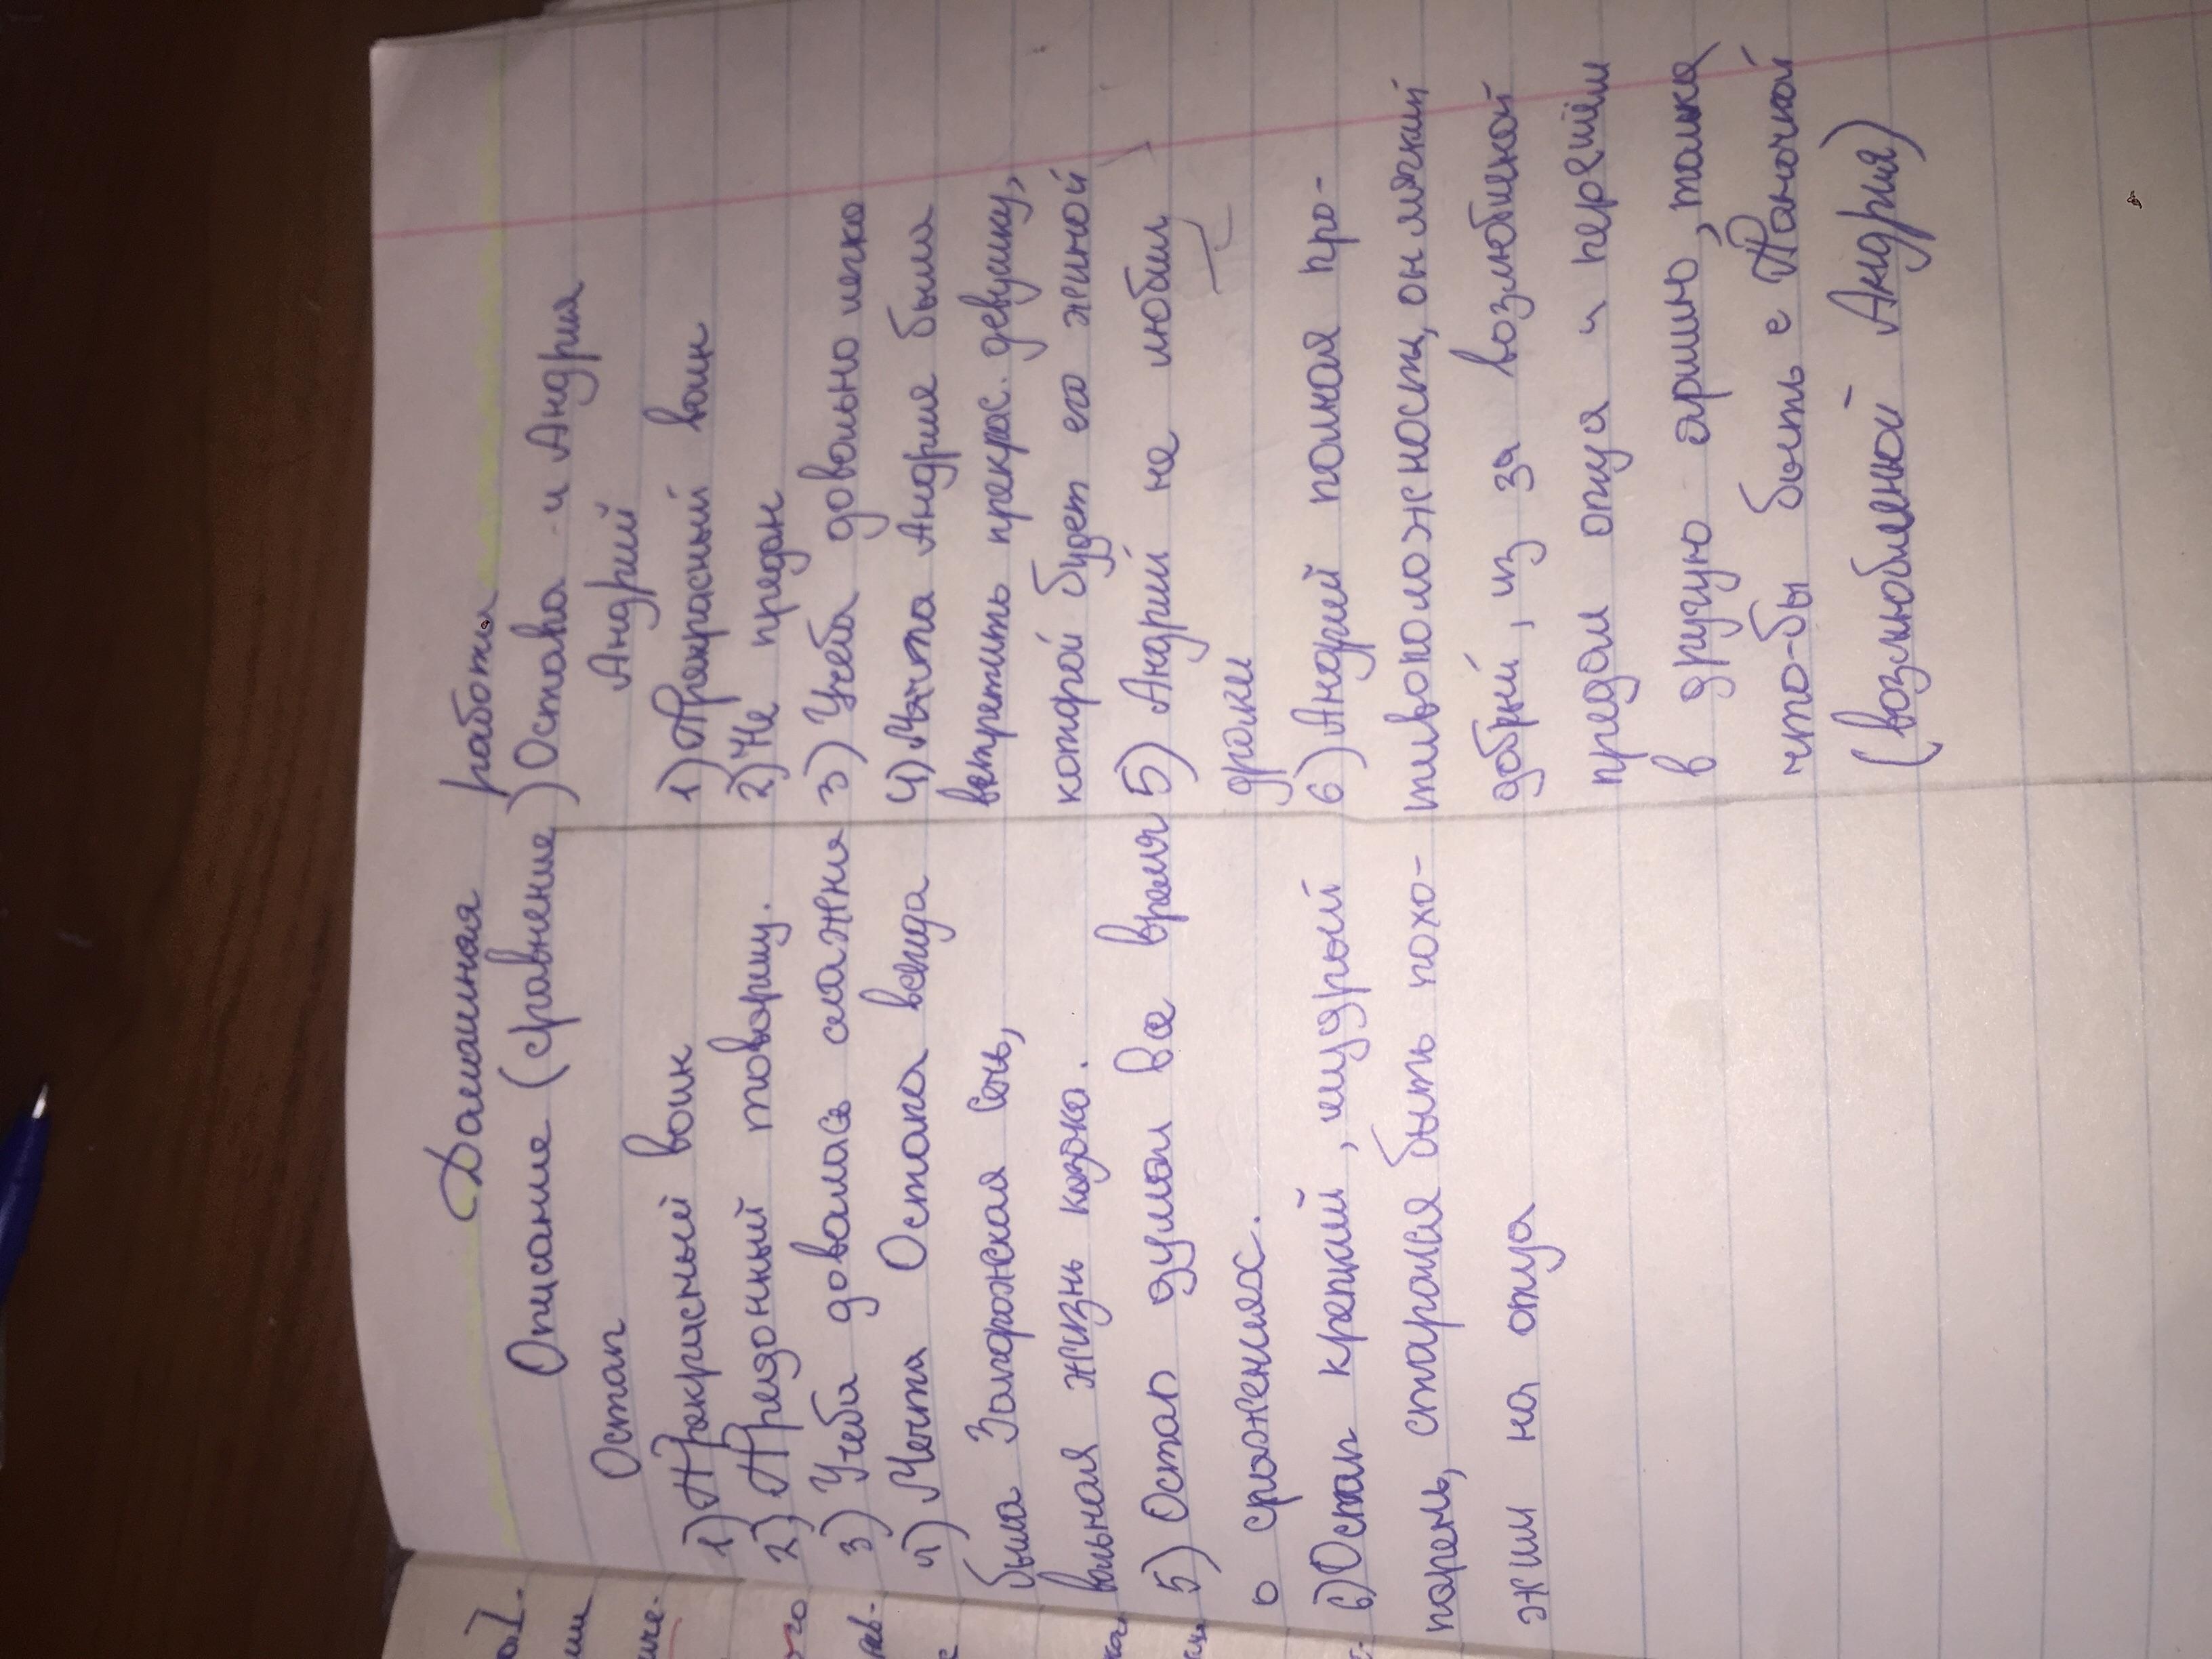 Домашняя работа
Описание (сравнение) Остапа и Андрия
Остап
1) Прекрасный воин
2) Преданный товарищ.
3) Учеба довалась сложна
4) Мечта Остапа всегда
была Запорожская Сечь,
вольная жизнь казака.
5) Остап думал все время
о сражениях.
6) Остап крепкий, мудрый
парень, старался быть похо-
жим на отца
Андрий
1) Прекрасный воин
2) Не предан
3) Учеба довольно легко
4) Мечта Андрие была
встретить прекрас. девушку,
которой будет его жиной
5) Андрий не любил
драки
6) Андрий полная про-
тивоположность, он мягкий
добрый, из за возлюбленой
предал отца и перешёл
в другую армию, только
что-бы быть с Паночкой
(возлюбленой Андрия)